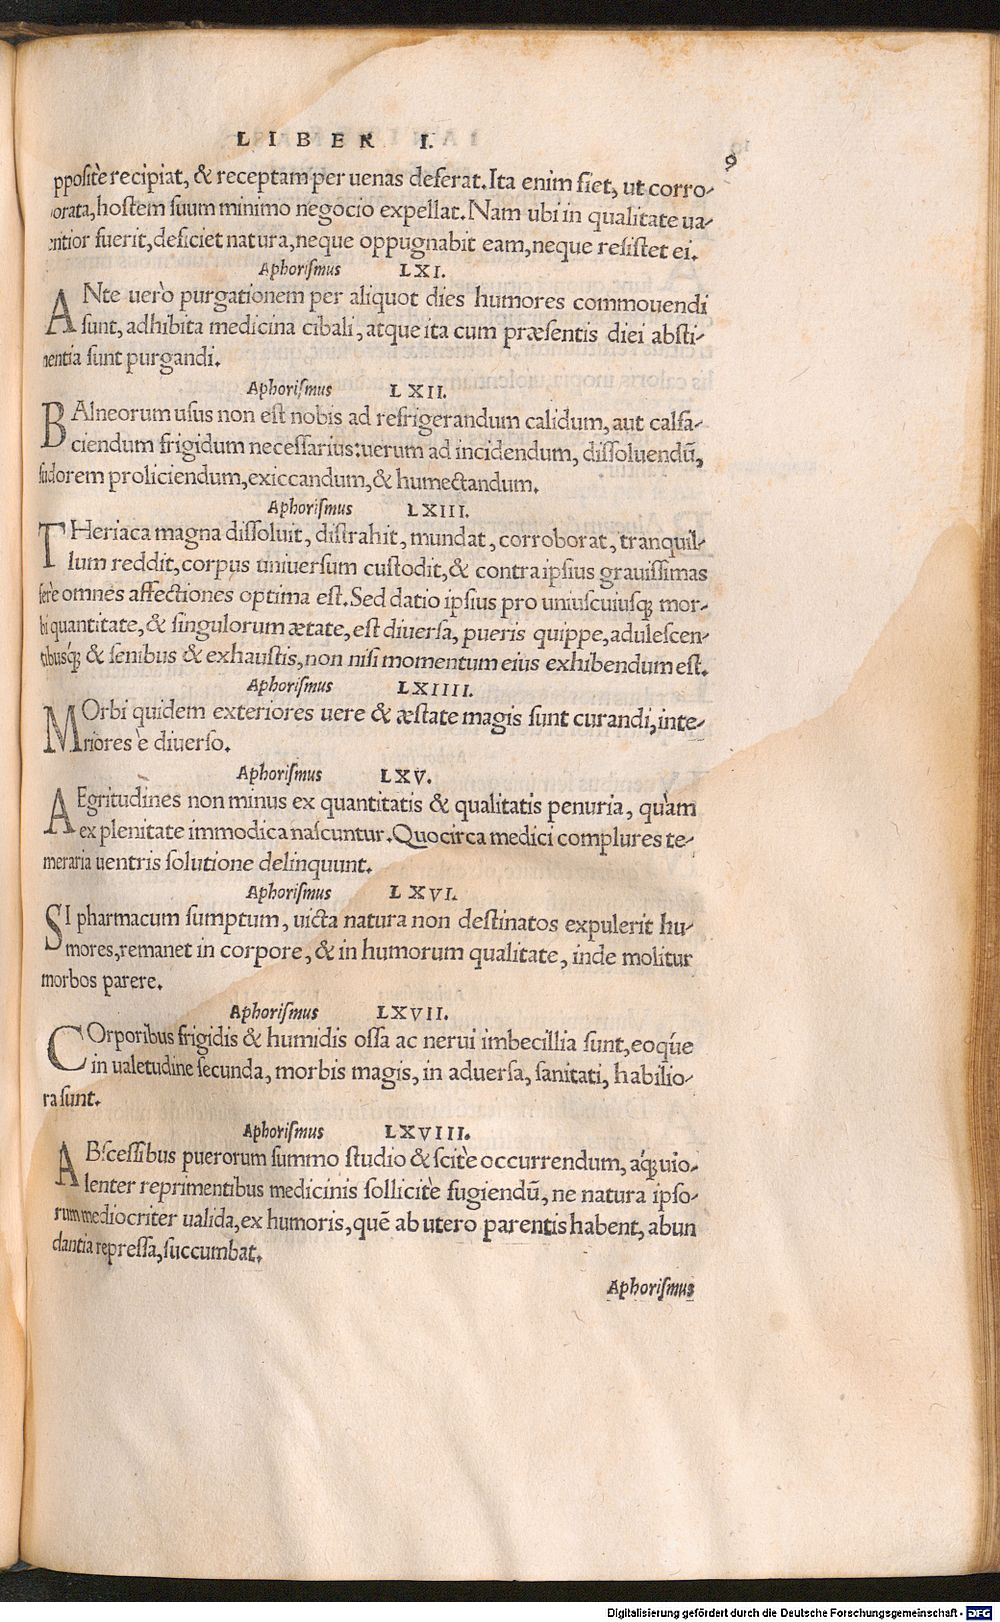 LIBER I. 9
ppositè recipiat, & receptam per uenas deferat. Ita enim fiet, ut corro-
orata, hostem suum minimo negocio expellat. Nam ubi in qualitate ua-
entior fuerit, deficiet natura, neque oppugnabit eam, neque resistet ei.
Aphorismus LXI.
ANte uerò purgationem per aliquot dies humores commouendi
sunt, adhibita medicina cibali, atque ita cum præsentis diei absti-
nentia sunt purgandi.
Aphorismus LXII.
BAlneorum usus non est nobis ad refrigerandum calidum, aut calfa-
ciendum frigidum necessarius: uerum ad incidendum, dissoluendū,
sudorem proliciendum, exiccandum, & humectandum.
Aphorismus LXIII.
THeriaca magna dissoluit, distrahit, mundat, corroborat, tranquil-
lum reddit, corpus uniuersum custodit, & contra ipsius grauissimas
ferè omnes affectiones optima est. Sed datio ipsius pro uniuscuiusq; mor-
bi quantitate, & singulorum ætate, est diuersa, pueris quippe, adulescen-
tibusq́; & senibus & exhaustis, non nisi momentum eius exhibendum est.
Aphorismus LXIIII.
MOrbi quidem exteriores uere & æstate magis sunt curandi, inte-
riores è diuerso.
Aphorismus LXV.
AEgritudines non minus ex quantitatis & qualitatis penuria, quàm
ex plenitate immodica nascuntur. Quocirca medici complures te-
meraria uentris solutione delinquunt.
Aphorismus LXVI.
SI pharmacum sumptum, uicta natura non destinatos expulerit hu-
mores, remanet in corpore, & in humorum qualitate, inde molitur
morbos parere.
Aphorismus LXVII.
COrporibus frigidis & humidis ossa ac nerui imbecillia sunt, eoq́ue
in ualetudine secunda, morbis magis, in aduersa, sanitati, habilio-
ra sunt.
Aphorismus LXVIII.
ABscessibus puerorum summo studio & scitè occurrendum, aq́; uio-
lenter reprimentibus medicinis sollicitè fugiendū, ne natura ipso-
rum mediocriter ualida, ex humoris, quē ab utero parentis habent, abun
dantia repressa, succumbat.
Aphorismus
Digitalisierung gefördert durch die Deutsche Forschungsgemeinschaft - DFG